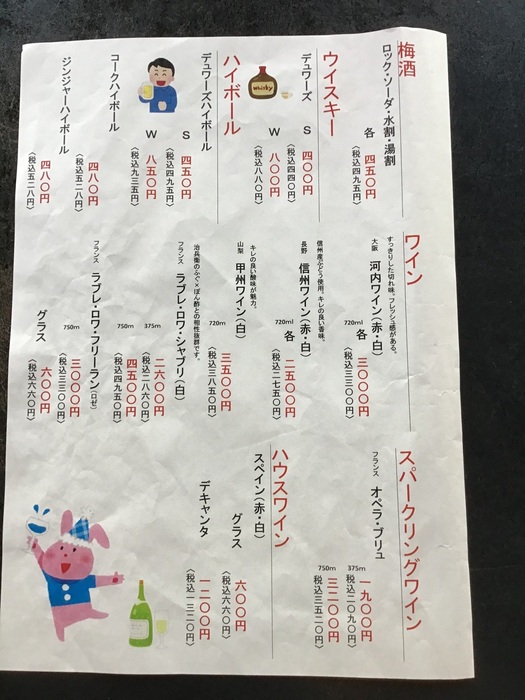 梅酒
ロック・ソーダ・水割・湯割
各 四五〇円
(税込四九五円)
ウイスキー
デュワーズ
S 四〇〇円
(税込四四〇円)
W 八〇〇円
(税込八八〇円)
whisky
ハイボール
デュワーズハイボール
S 四五〇円
(税込四九五円)
W 八五〇円
(税込九三五円)
コークハイボール
四八〇円
(税込五二八円)
ジンジャーハイボール
四八〇円
(税込五二八円)
ワイン
すっきりした切れ味。フレッシュ感がある。
大阪 河内ワイン(赤・白)
720ml 各 三〇〇〇円
(税込三三〇〇円)
信州産ぶどう使用。キレの良い香味。
長野 信州ワイン(赤・白)
720ml 各 二五〇〇円
(税込二七五〇円)
キレの良い酸味が魅力。
山梨 甲州ワイン(白)
720m 三五〇〇円
(税込三八五〇円)
治兵衛のふぐ×ぽん酢との相性抜群です。
フランス ラブレ・ロワ・シャブリ(白)
375m 二六〇〇円
(税込二八六〇円)
750m 四五〇〇円
(税込四九五〇円)
フランス ラブレ・ロワ・フリーラン(ロゼ)
750m 三〇〇〇円
(税込三三〇〇円)
グラス 六〇〇円
(税込六六〇円)
スパークリングワイン
フランス オペラ・ブリュ
375m 一九〇〇円
(税込二〇九〇円)
750m 三二〇〇円
(税込三五二〇円)
ハウスワイン
スペイン(赤・白)
グラス 六〇〇円
(税込六六〇円)
デキャンタ 一二〇〇円
(税込一三二〇円)